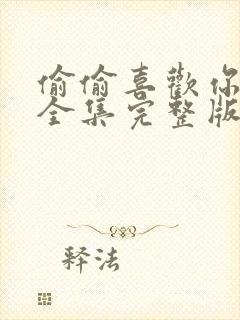 偷偷喜歡你
全集完整版
释法